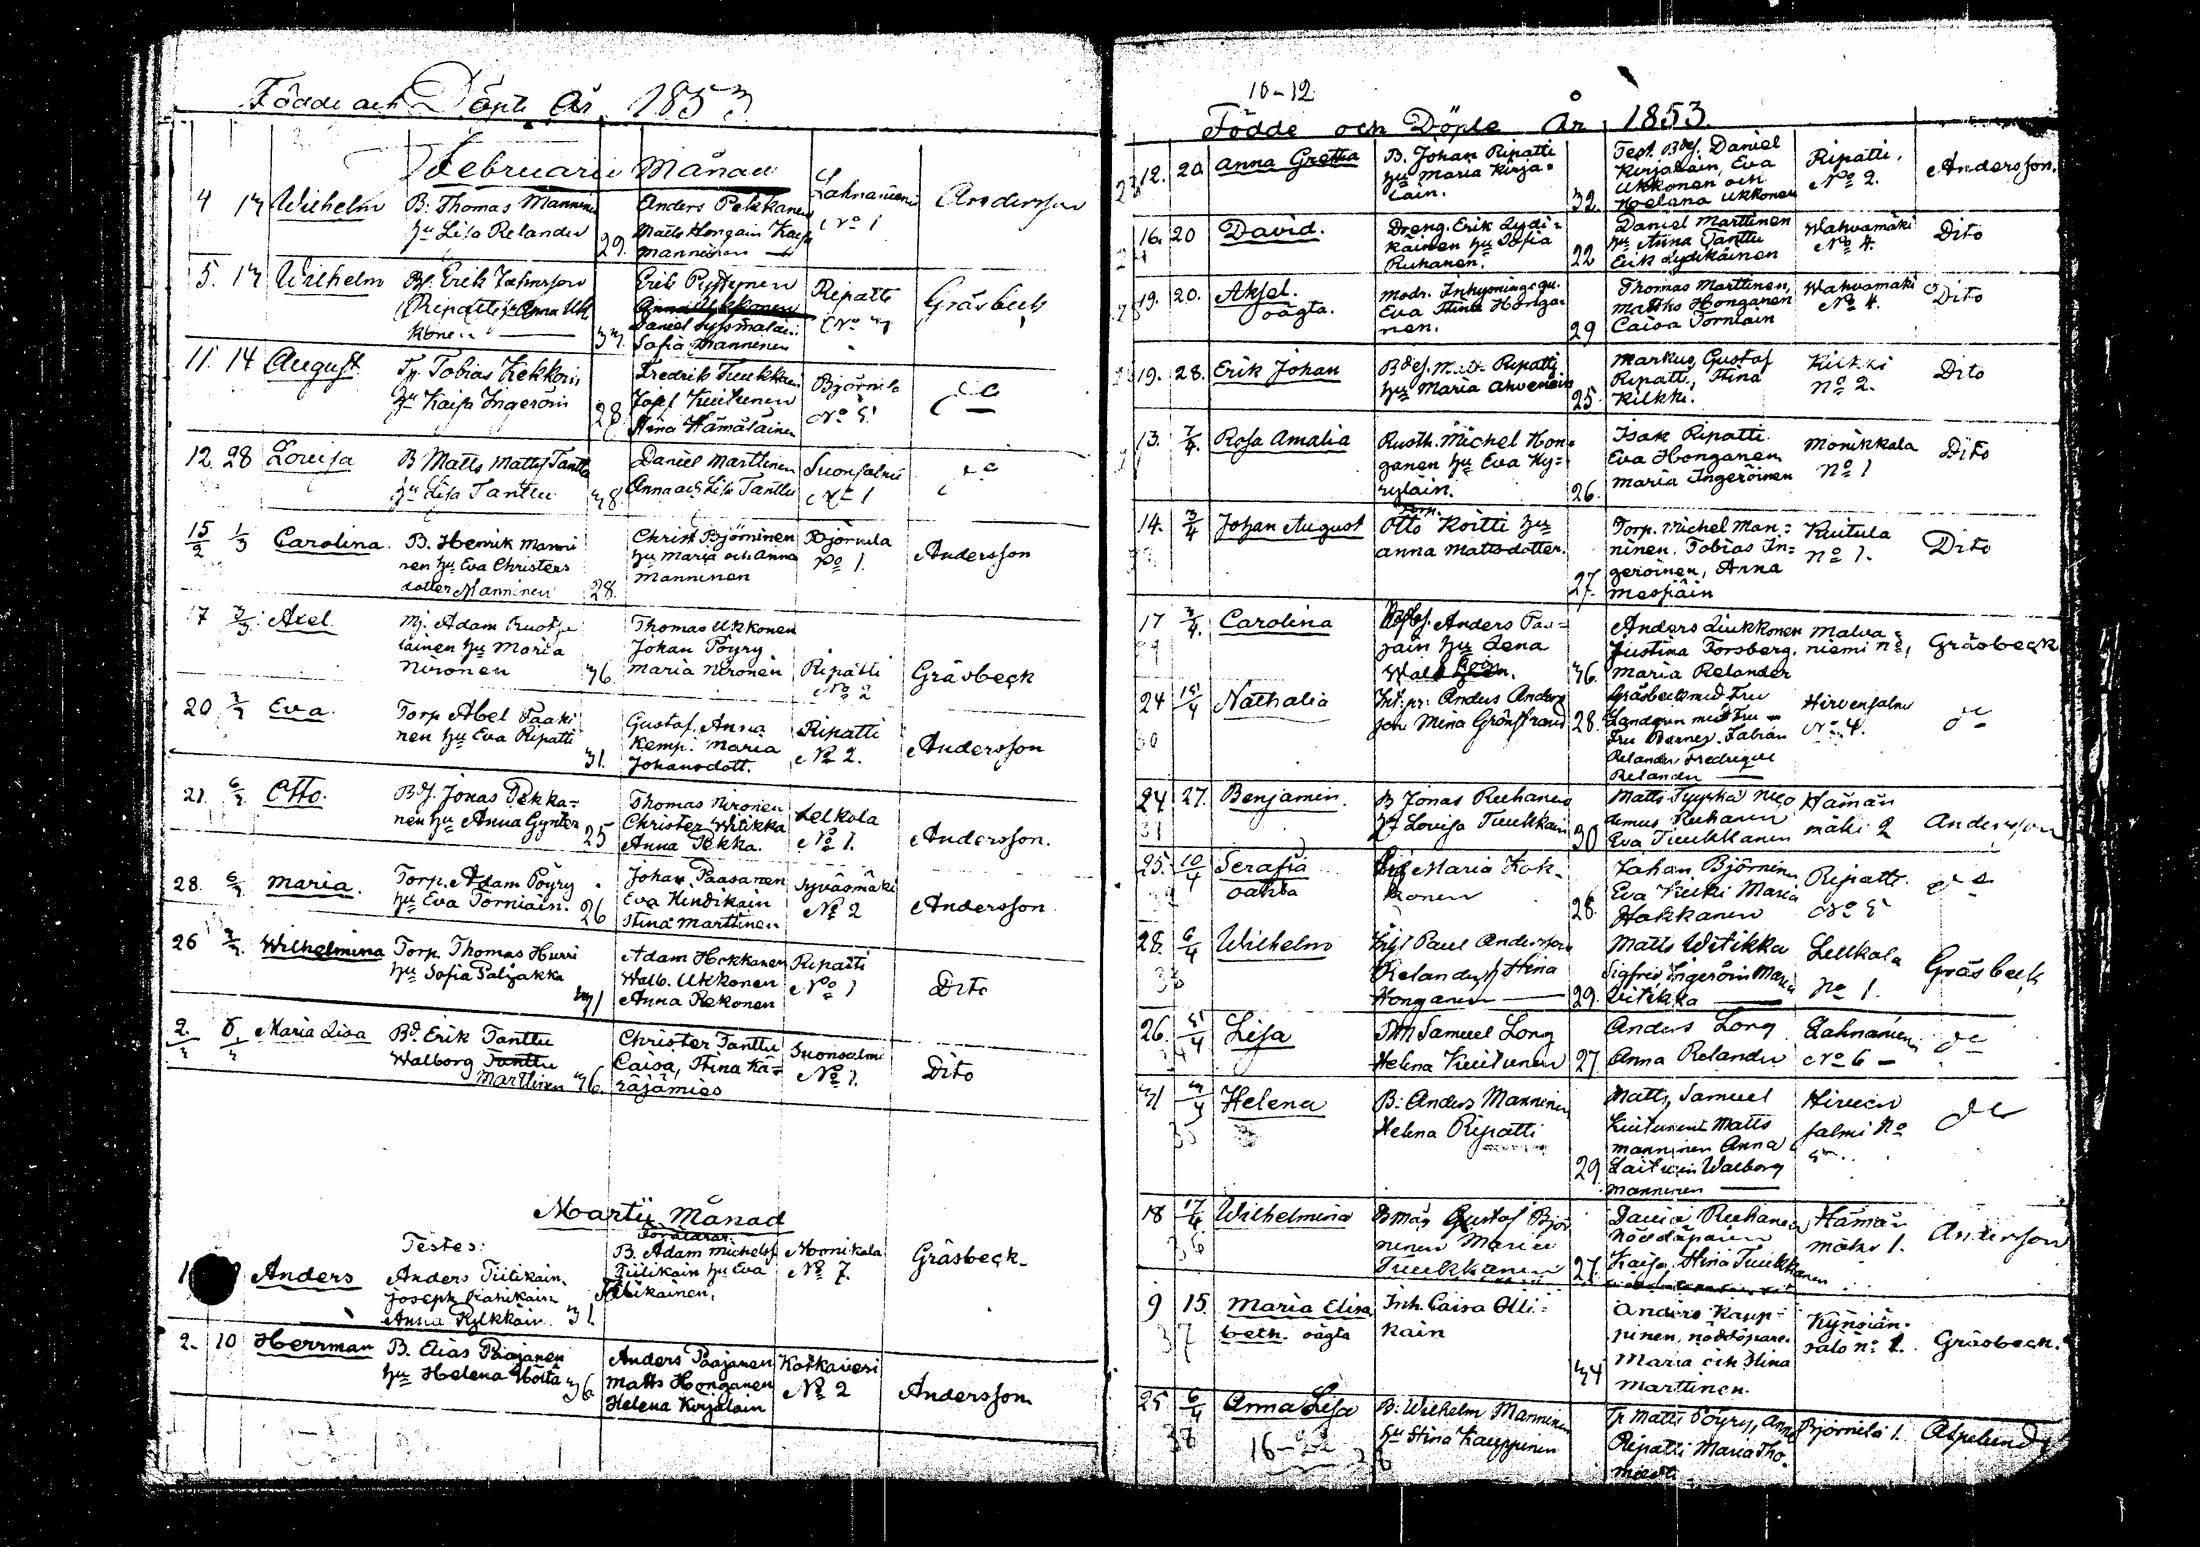 Födde och Döpte År 1853
Februarii Månad
4 13 Wilhelm B. Thomas Manninen Anders Pekkanen Lahnaniemi Andersson
hu Lisa Relander 29. Matts Hongain Kaisa No 1
Manninen
5. 13 Wilhelm Bs. Erik Erik Pythynen Ripatti Gräsbeck
Ripatti hu Anna Uk No
konen 33. Daniel
Sofia Manninen
11. 14 August Tp Tobias Kekkoin Fredrik Tuukkain Björnilä do
hu Kaisa Ingeröin 28 Josef Kuitunen No 5
Stina Hämäläinen
12. 28 Lovisa B Matts Tanttu Daniel Marttinen Suonsalmi do
hu Lisa Tanttu 38 Anna och Lisa Tanttu No 1
15/2 1/3 Carolina. B. Henrik Manni Christ Björninen Björnilä Andersson
nen hu Eva Christers hu Maria och Anna No 1.
dotter Manninen 28. Manninen
17 3/3 Axel Mj. Adam Thomas Ukkonen
lainen hu Maria Johan Pöyry
Nironen 36 Maria Nironen Ripatti Gräsbeck
No 2
20 3/3 Eva. Torp Abel Paaki Gustaf, Anna Ripatti Andersson
nen hu Eva Ripatti Kemp. Maria No 2.
31. Johansdott.
21. 6/3 Otto. Bdf. Jonas Pekka= Thomas Nironen Lelkola
nen hu Anna Gynter Christer Witikka No 1. Andersson.
25 Anna Pekka.
28. 6/3 Maria. Torp. Adam Pöyry Johan Paasanen Syväsmäki
hu Eva Torniain. Eva Hindikain No 2 Andersson.
26 Stina Marttinen
26 3/3 Wilhelmina Torp. Thomas Hurri Adam Hokkanen Ripatti
hu Sofia Paljakka Walb. Ukkonen No 1 Dito
31 Anna Rekonen
2/3 6/3 Maria Lisa Bd. Erik Tanttu Christer Tanttu Suonsalmi
Walborg Tanttu Caisa, Stina Kä= No 1. Dito
Marttinen 36. räjämies
Martii Månad
Testes: Föräldrar
1 Anders Anders Tiilikain. B. Adam Michelsf Monikala Gräsbeck
Joseph Tiilikain hu Eva No 7.
Anna Pylkkäin. 31
2. 10 Herrman B. Elias Paajanen Anders Paajanen Korkaniemi
hu Helena 36 Matts Honganen No 2 Andersson
Helena Kirjalain
10-12
Födde och Döpte År 1853.
12. 20. Anna Gretta B. Johan Ripatti Test. Bdf. Daniel Ripatti, Andersson.
hu Maria Kirja= Kirjalain, Eva No 2.
lain. Ukkonen och
32. Helena Ukkonen
16. 20 David. Dreng. Erik Lydi= Daniel Marttinen Wahvamäki Dito
käinen hu Sofia hu Anna Tanttu No 4.
Ruhanen. 22 Erik Lydikäinen
19. 20. Aksel. Modr. Inhysningsqu. Thomas Marttinen, Wahvamäki Dito
oägta. Eva Stina Honga- Matths Honganen No 4.
nen. 29 Caisa Torniain
19. 28. Erik Johan Bdef. Matts Ripatti Markus, Gustaf Kilkki Dito
hu Maria Ahvenain Ripatti, Stina No 2.
25. Kilkki.
13. 7/4. Rosa Amalia Rusth. Michel Hon= Isak Ripatti Monikkala Dito
ganen hu Eva Ky= Eva Honganen No 1
ryläin. 26. Maria Ingeröinen
14. 3/4 Johan August Otto Koitti hu Torp. Michel Man= Kuitula
Anna Mattsdotter. ninen. Tobias In= No 1. Dito
geröinen, Anna
27. Mesiäin
17 3/4. Carolina Anders Paa= Anders Liukkonen Malva=
jain hu Lena Justina Forsberg. niemi No 1 Gräsbeck
36. Maria Relander
24 Nathalia Anders Anders Gräsbeck med Fru Hirvensalmi
son Mina Grönstrand 28. Landgren med Fru No 4. do
Fru Barnes. Fabian
Relander, Fredrique
Relander
24 27. Benjamin. B Jonas Ruhanen Matts Tyyskä Nico Hämän
hu Lovisa Tuukkain demus Ruhanen mäki 2 Andersson
30 Eva Tuukkanen
25. 10/4 Serafia Maria Kok- Johan Björninen Ripatti do
oäkta konen Eva Kilkki Maria No 5
28. Hokkanen
28. 6/4 Wilhelm Paul Andersson Matts Witikka Lelkkola
Relander, Stina Sigfrid Ingeröin Maria No 1. Gräsbeck
Honganen 29. Witikka
26. Lisa Samuel Long Anders Long Lahnaniemi do
Helena Kuitunen 27 Anna Relander No 6
31 Helena B. Anders Manninen Matts, Samuel Hirven do
Helena Ripatti Kuitunen Matts salmi No
Manninen Anna 5
29 Laitinen Walborg
Manninen
18 17/4 Wilhelmina Bmåg Gustaf Björ Ruhanen Hämän
ninen Maria Nöddöparen mäki 1. Andersson
Tuukkanen 27. Kaisa, Stina Tuukkanen
9 15 Maria Elisa Inh. Caisa Olli= Anders Kaup= Kynsiän-
beth. oägta kain pinen, nöddöpare. salo No 2. Gräsbeck.
34 Maria och Stina
Marttinen.
25 6/4 Anna Lisa B. Wilhelm Manninen Tp Matts Pöyry, Anna Björnilä 1. Aspelund
hu Stina Kauppinen Ripatti Maria Tho.
16-22